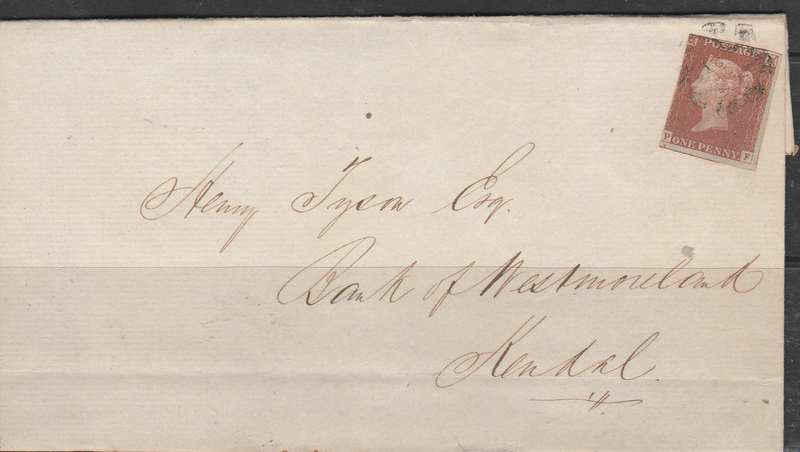 POSTAGE
P ONE PENNY F
Henry Tyson Esq.
Bank of Westmoreland
Kendal.